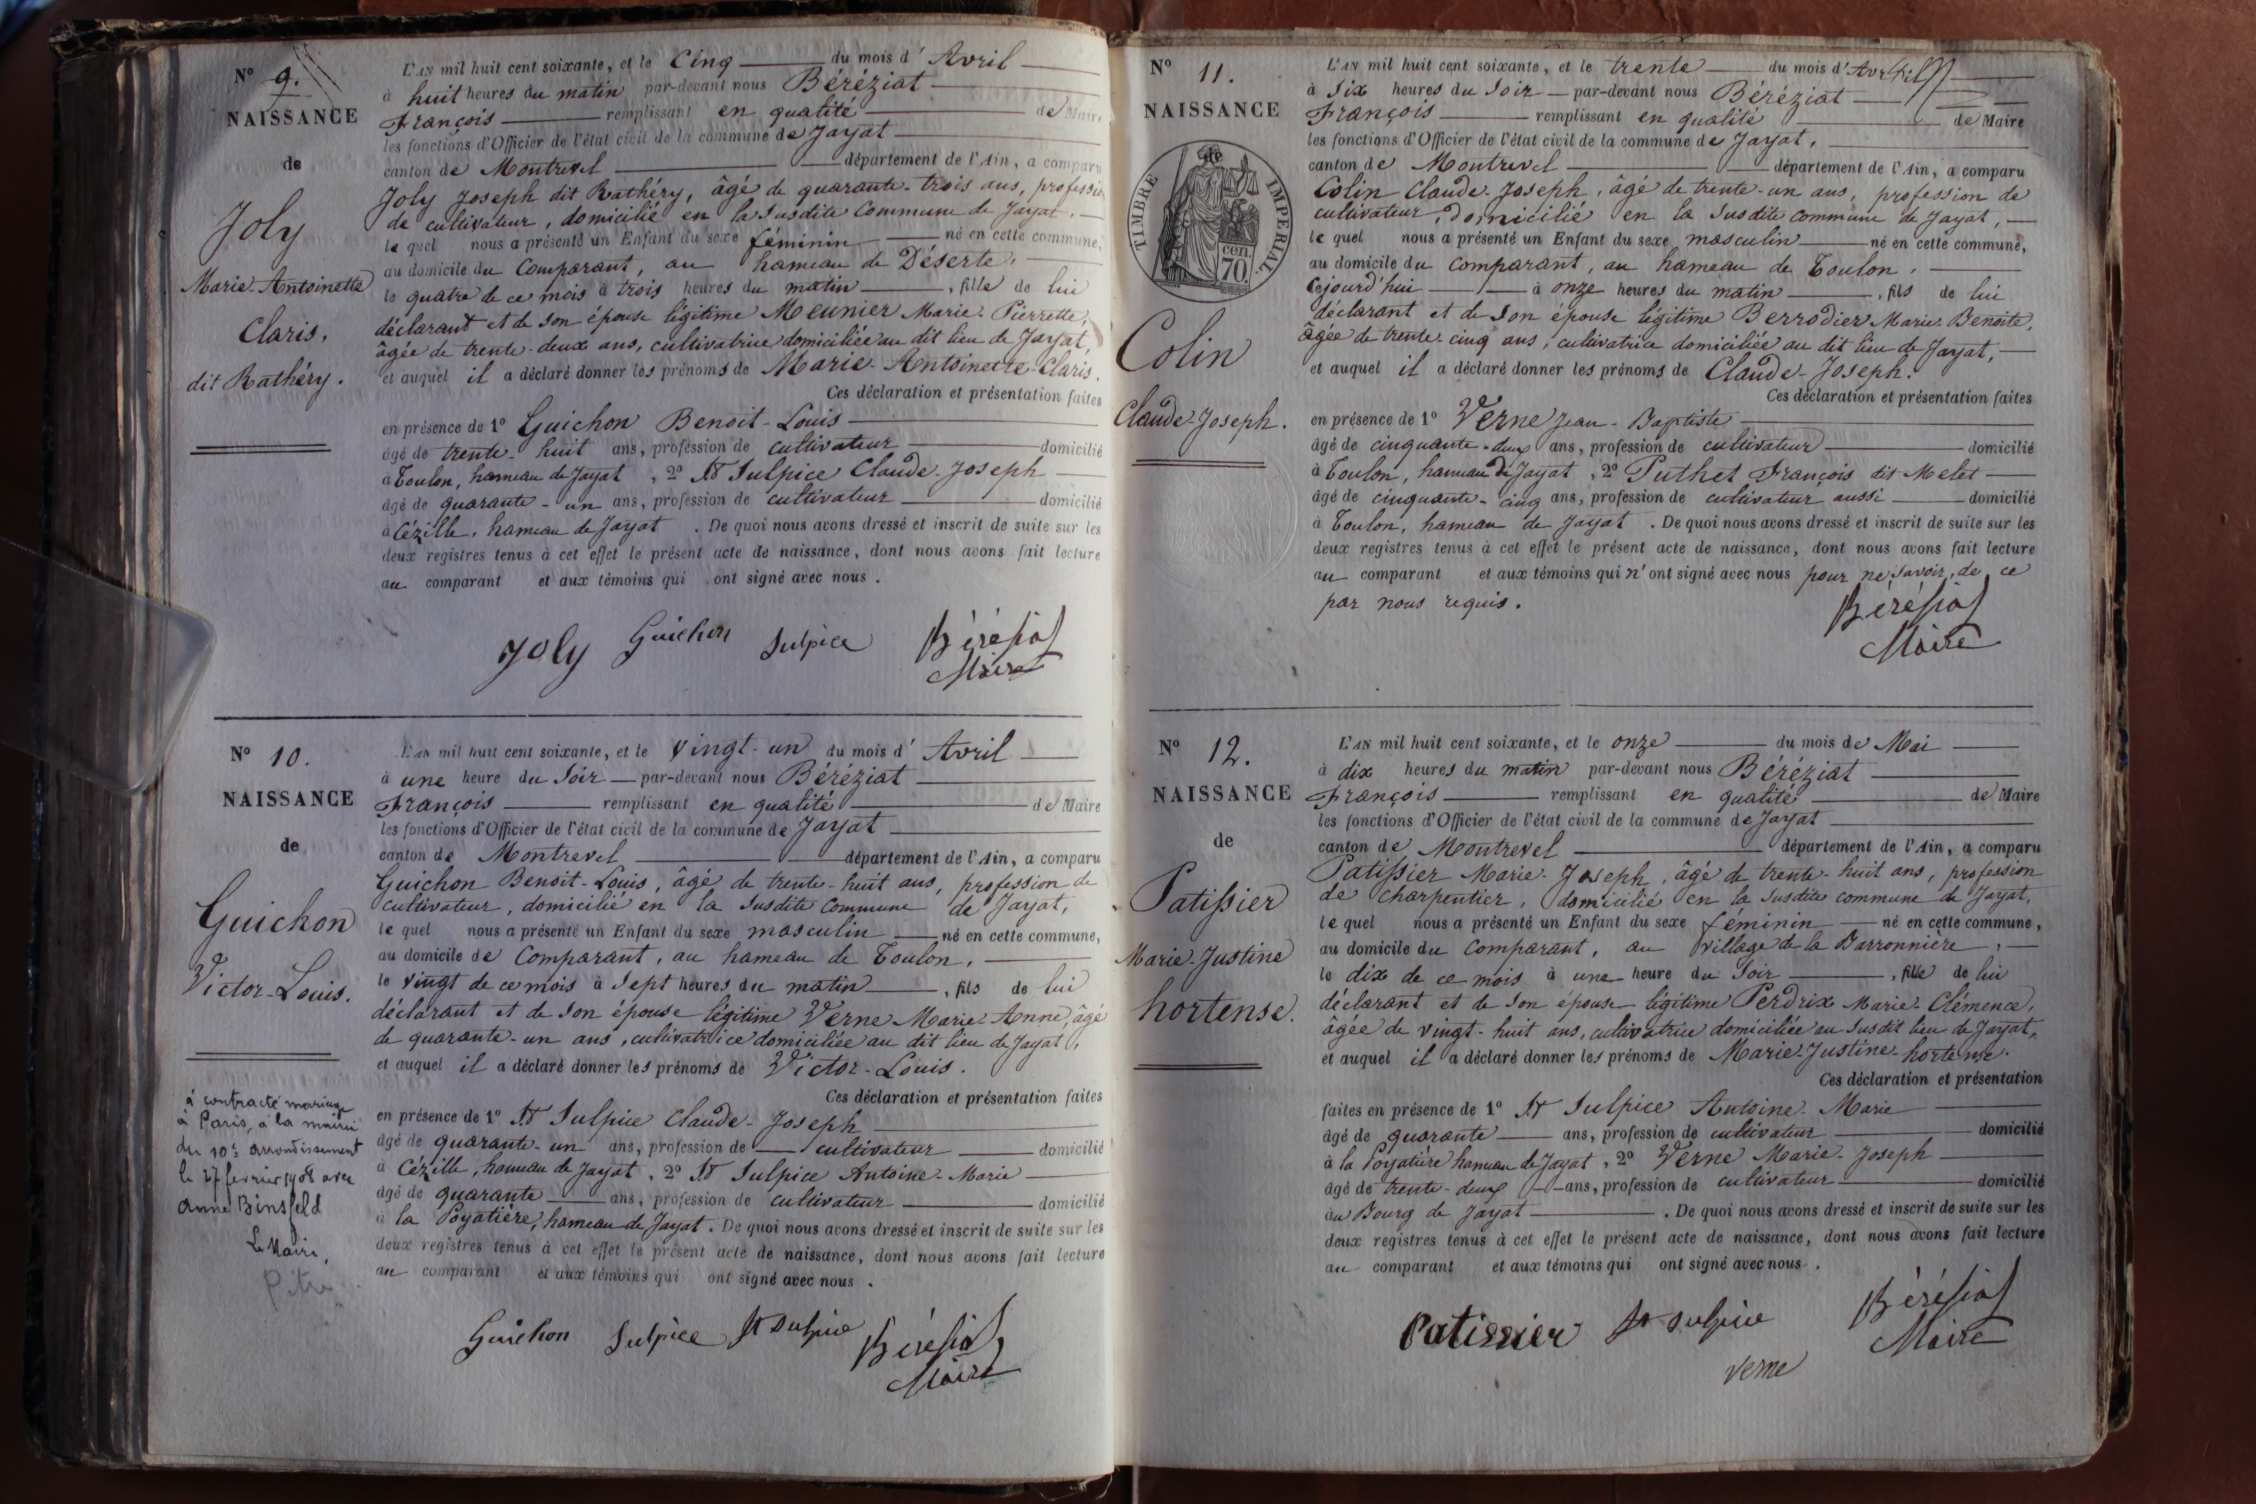 N° 9.
NAISSANCE
de
Joly
Marie-Antoinette
Claris.
dit Rathéry.
L'AN mil huit cent soixante, et le Cinq du mois d' Avril
à huit heures du matin par-devant nous Béréziat
François remplissant en qualité de Maire
les fonctions d'Officier de l'état civil de la commune de Jayat
canton de Montrevel département de l'Ain, a comparu
Joly Joseph dit Rathéry, âgé de quarante-trois ans, profession
de cultivateur, domicilié en la susdite Commune de Jayat,
le quel nous a présenté un Enfant du sexe féminin né en cette commune,
au domicile du Comparant, au hameau de Déserte,
le quatre de ce mois à trois heures du matin, fille de lui
déclarant et de son épouse légitime Meunier Marie-Pierrette,
âgée de trente-deux ans, cultivatrice domiciliée au dit lieu de Jayat,
et auquel il a déclaré donner les prénoms de Marie-Antoinette-Claris.
Ces déclaration et présentation faites
en présence de 1° Guichon Benoit-Louis
âgé de trente-huit ans, profession de cultivateur domicilié
à Toulon, hameau de Jayat, 2° St Sulpice Claude-Joseph
âgé de quarante-un ans, profession de cultivateur domicilié
à Cézille, hameau de Jayat. De quoi nous avons dressé et inscrit de suite sur les
deux registres tenus à cet effet le présent acte de naissance, dont nous avons fait lecture
au comparant et aux témoins qui ont signé avec nous.
Joly Guichon Sulpice Bérésiat
Maire
N° 10.
NAISSANCE
de
Guichon
Victor-Louis.
à contracté mariage
à Paris, à la mairie
du 10e arrondissement
le 27 fevrier 1908 avec
Anne Binsfeld
Le Maire,
L'AN mil huit cent soixante, et le vingt-un du mois d' Avril
à une heure du Soir par-devant nous Béréziat
François remplissant en qualité de Maire
les fonctions d'Officier de l'état civil de la commune de Jayat
canton de Montrevel département de l'Ain, a comparu
Guichon Benoit-Louis, âgé de trente-huit ans, profession de
cultivateur, domicilié en la susdite Commune de Jayat,
le quel nous a présenté un Enfant du sexe masculin né en cette commune,
au domicile de Comparant, au hameau de Toulon,
le vingt de ce mois à Sept heures du matin, fils de lui
déclarant et de son épouse légitime Verne Marie-Anne, âgé
de quarante-un ans, cultivatrice domiciliée au dit lieu de Jayat,
et auquel il a déclaré donner les prénoms de Victor-Louis.
Ces déclaration et présentation faites
en présence de 1° St Sulpice Claude-Joseph
âgé de quarante-un ans, profession de cultivateur domicilié
à Cézille, hameau de Jayat, 2° St Sulpice Antoine-Marie
âgé de quarante ans, profession de cultivateur domicilié
à la Poyatière, hameau de Jayat. De quoi nous avons dressé et inscrit de suite sur les
deux registres tenus à cet effet le présent acte de naissance, dont nous avons fait lecture
au comparant et aux témoins qui ont signé avec nous.
Guichon Sulpice St Sulpice Bérésiat
Maire
N° 11.
NAISSANCE
de
TIMBRE IMPÉRIAL.
70 cen.
Colin
Claude-Joseph.
L'AN mil huit cent soixante, et le trente du mois d'Avril
à six heures du Soir par-devant nous Béréziat
François remplissant en qualité de Maire
les fonctions d'Officier de l'état civil de la commune de Jayat,
canton de Montrevel département de l'Ain, a comparu
Colin Claude-Joseph, âgé de trente-un ans, profession de
cultivateur, domicilié en la susdite commune de Jayat,
le quel nous a présenté un Enfant du sexe masculin né en cette commune,
au domicile du comparant, au hameau de Toulon,
cejourd'hui à onze heures du matin, fils de lui
déclarant et de son épouse légitime Berrodier Marie-Benoite,
âgée de trente-cinq ans, cultivatrice domiciliée au dit lieu de Jayat,
et auquel il a déclaré donner les prénoms de Claude-Joseph.
Ces déclaration et présentation faites
en présence de 1° Verne Jean-Baptiste
âgé de cinquante-deux ans, profession de cultivateur domicilié
à Toulon, hameau de Jayat, 2° Puthet François dit Melet
âgé de cinquante-cinq ans, profession de cultivateur aussi domicilié
à Toulon, hameau de Jayat. De quoi nous avons dressé et inscrit de suite sur les
deux registres tenus à cet effet le présent acte de naissance, dont nous avons fait lecture
au comparant et aux témoins qui n'ont signé avec nous pour ne savoir, de ce
par nous requis.
Bérésiat
Maire
N° 12.
NAISSANCE
de
Patissier
Marie-Justine
hortense.
L'AN mil huit cent soixante, et le onze du mois de Mai
à dix heures du matin par-devant nous Béréziat
François remplissant en qualité de Maire
les fonctions d'Officier de l'état civil de la commune de Jayat
canton de Montrevel département de l'Ain, a comparu
Patissier Marie-Joseph, âgé de trente-huit ans, profession
de charpentier, domicilié en la susdite commune de Jayat,
le quel nous a présenté un Enfant du sexe féminin né en cette commune,
au domicile du comparant, au village de la Barronnière,
le dix de ce mois à une heure du Soir, fille de lui
déclarant et de son épouse légitime Perdrix Marie-Clémence,
âgée de vingt-huit ans, cultivatrice domiciliée au susdit lieu de Jayat,
et auquel il a déclaré donner les prénoms de Marie-Justine-hortense.
Ces déclaration et présentation
faites en présence de 1° St Sulpice Antoine-Marie
âgé de quarante ans, profession de cultivateur domicilié
à la Poyatière hameau de Jayat, 2° Verne Marie-Joseph
âgé de trente-deux ans, profession de cultivateur domicilié
au Bourg de Jayat. De quoi nous avons dressé et inscrit de suite sur les
deux registres tenus à cet effet le présent acte de naissance, dont nous avons fait lecture
au comparant et aux témoins qui ont signé avec nous.
Patissier St Sulpice Bérésiat
Verne Maire